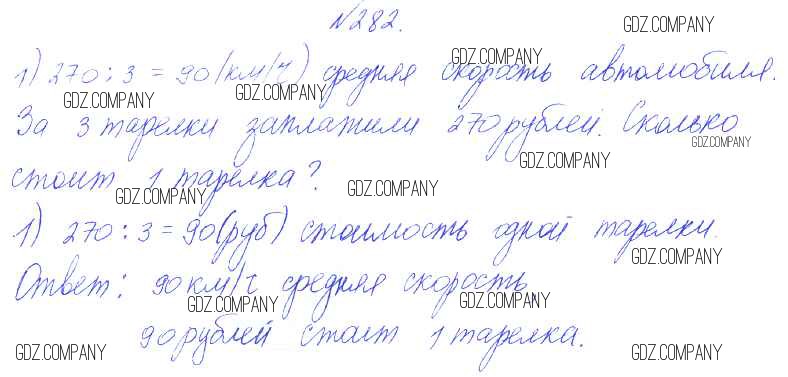 №282.
1) 270 : 3 = 90 (км/ч) средняя скорость автомобиля.
За 3 тарелки заплатили 270 рублей. Сколько
стоит 1 тарелка?
1) 270 : 3 = 90 (руб) стоимость одной тарелки.
Ответ: 90 км/ч средняя скорость,
90 рублей стоит 1 тарелка.
GDZ.COMPANY
GDZ.COMPANY
GDZ.COMPANY
GDZ.COMPANY
GDZ.COMPANY
GDZ.COMPANY
GDZ.COMPANY
GDZ.COMPANY
GDZ.COMPANY
GDZ.COMPANY
GDZ.COMPANY
GDZ.COMPANY
GDZ.COMPANY